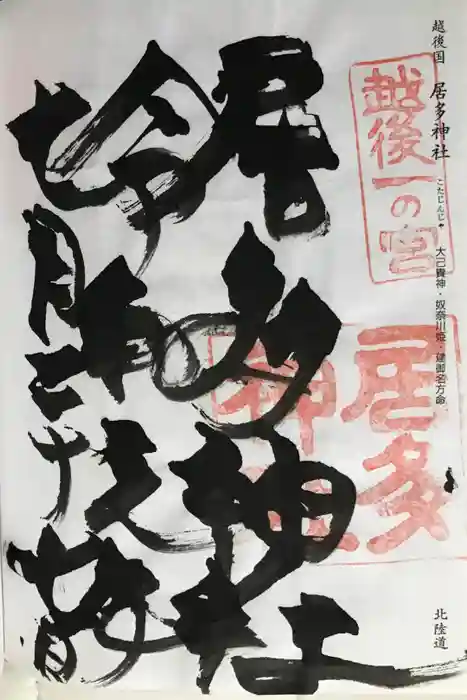 越後国 居多神社 こたじんじゃ 大己貴神・奴奈川姫・建御名方命 北陸道
越後一の宮
居多
神社
居多神社
令和元歳
七月二十七日